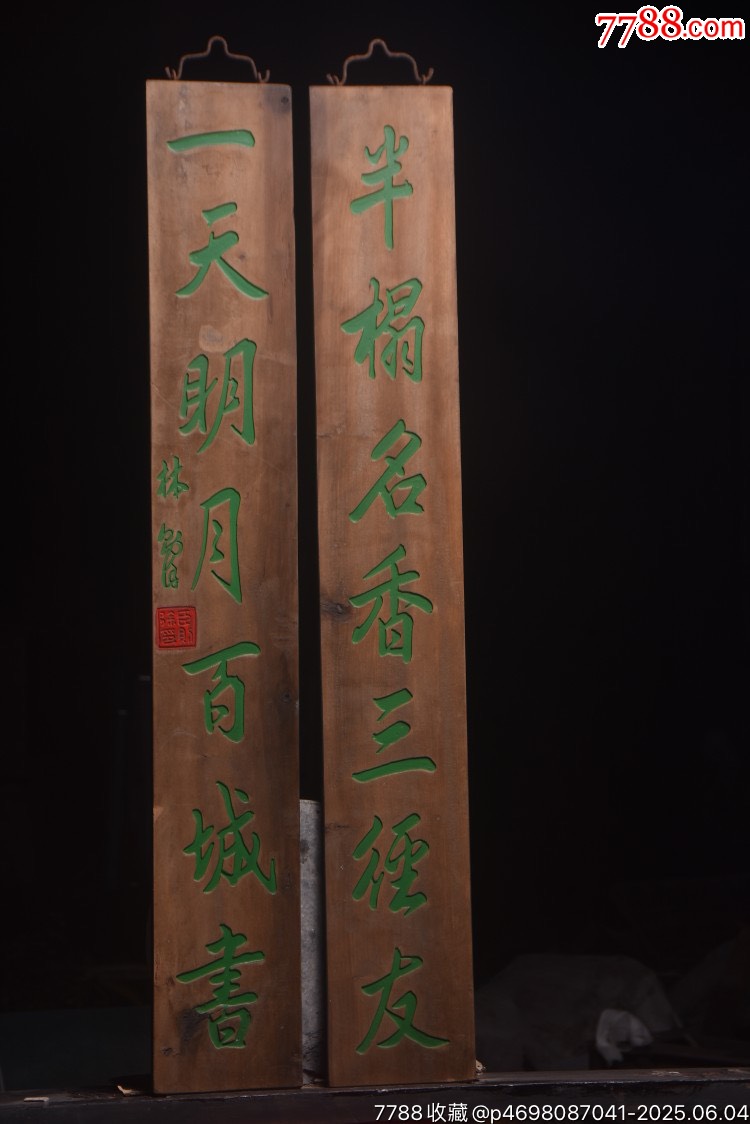 7788.com
半榻名香三径友
一天明月百城书
林
7788收藏@p4698087041-2025.06.04